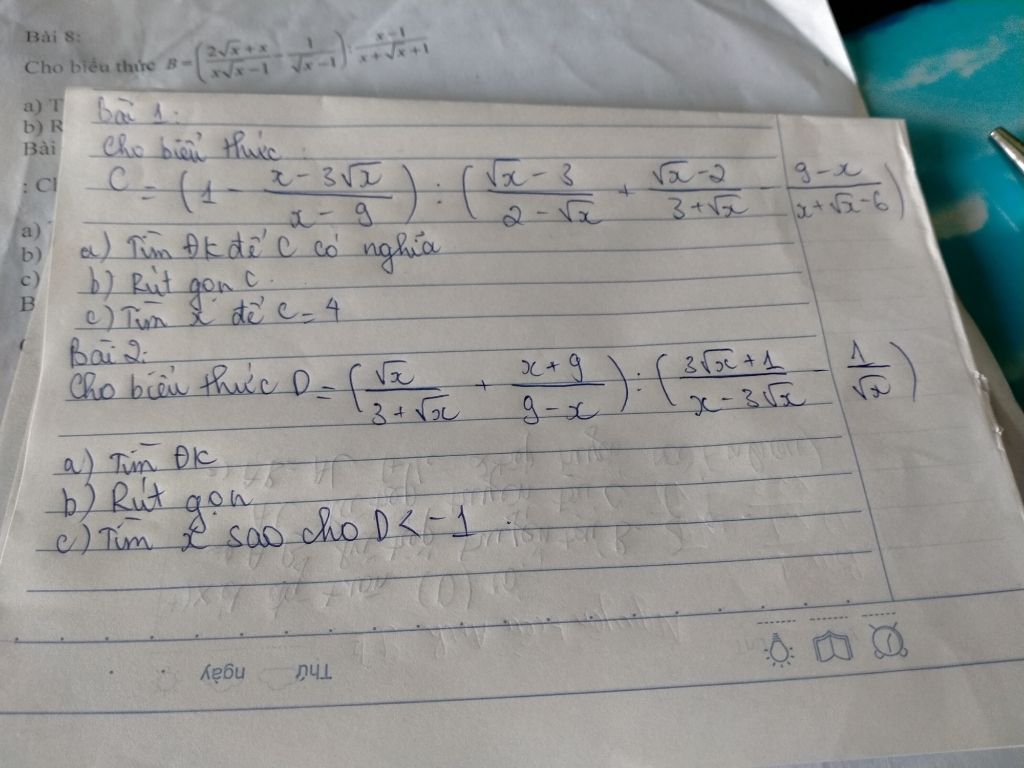 Bài 8:
Cho biểu thức B = (2√x + x / x√x − 1 − 1 / √x − 1) : x − 1 / x + √x + 1
a) T
b) R
Bài
: Cl
a)
b)
c)
B
Bài 1:
Cho biểu thức
C = (1 − x − 3√x / x − 9) : (√x − 3 / 2 − √x + √x − 2 / 3 + √x − 9 − x / x + √x − 6)
a) Tìm ĐK để C có nghĩa
b) Rút gọn C.
c) Tìm x để C = 4
Bài 2:
Cho biểu thức D = (√x / 3 + √x + x + 9 / 9 − x) : (3√x + 1 / x − 3√x − 1 / √x)
a) Tìm ĐK
b) Rút gọn
c) Tìm x sao cho D < −1.
Thứ ngày